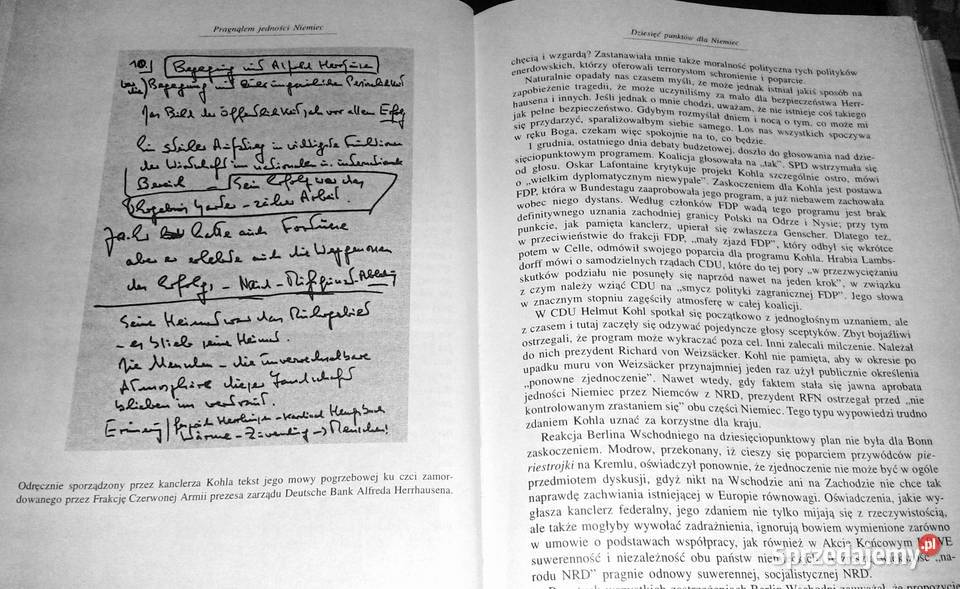 Pragnąłem jedności Niemiec
10) Begegnung mit Alfred Herrhausen
Begegnung mit
Das Bild der Öffentlichkeit sah vor allem Erfolg
Ein steiler Aufstieg in wichtigste Funktionen
der Wirtschaft im nationalen u. internationalen
Bereich – Sein Erfolg war das
Ergebnis harter – zäher Arbeit.
hatte auch Fortüne
aber er erlebte auch die Weggenossen
des Erfolgs, – Neid – Mißgunst – Ablehnung
Seine Heimat war das Ruhrgebiet
– es blieb seine Heimat.
Die Menschen – die unverwechselbare
Atmosphäre dieser Landschaft
blieben ihm vertraut.
Wärme – Zuwendung → Menschen!
Odręcznie sporządzony przez kanclerza Kohla tekst jego mowy pogrzebowej ku czci zamor-
dowanego przez Frakcję Czerwonej Armii prezesa zarządu Deutsche Bank Alfreda Herrhausena.
Dziesięć punktów dla Niemiec
chęcią i wzgardą? Zastanawiała mnie także moralność polityczna tych polityków
enerdowskich, którzy oferowali terrorystom schronienie i poparcie.
Naturalnie opadały nas czasem myśli, że może jednak istniał jakiś sposób na
zapobieżenie tragedii, że może uczyniliśmy za mało dla bezpieczeństwa Herr-
hausena i innych. Jeśli jednak o mnie chodzi, uważam, że nie istnieje coś takiego
jak pełne bezpieczeństwo. Gdybym rozmyślał dniem i nocą o tym, co może mi
się przydarzyć, sparaliżowałbym siebie samego. Los nas wszystkich spoczywa
w ręku Boga, czekam więc spokojnie na to, co będzie.
1 grudnia, ostatniego dnia debaty budżetowej, doszło do głosowania nad dzie-
sięciopunktowym programem. Koalicja głosowała na „tak”. SPD wstrzymała się
od głosu. Oskar Lafontaine krytykuje projekt Kohla szczególnie ostro, mówi
o „wielkim dyplomatycznym niewypale”. Zaskoczeniem dla Kohla jest postawa
FDP, która w Bundestagu zaaprobowała jego program, a już niebawem zachowała
wobec niego dystans. Według członków FDP wadą tego programu jest brak
definitywnego uznania zachodniej granicy Polski na Odrze i Nysie, przy tym
punkcie, jak pamięta kanclerz, upierał się zwłaszcza Genscher. Dlatego też,
w przeciwieństwie do frakcji FDP, „mały zjazd FDP”, który odbył się wkrótce
potem w Celle, odmówił swojego poparcia dla programu Kohla. Hrabia Lambs-
dorff mówi o samodzielnych rządach CDU, które do tej pory „w przezwyciężaniu
skutków podziału nie posunęły się naprzód nawet na jeden krok”, w związku
z czym należy wziąć CDU na „smycz polityki zagranicznej FDP”. Jego słowa
w znacznym stopniu zagęściły atmosferę w całej koalicji.
W CDU Helmut Kohl spotkał się początkowo z jednogłośnym uznaniem, ale
z czasem i tutaj zaczęły się odzywać pojedyncze głosy sceptyków. Zbyt bojaźliwi
ostrzegali, że program może wykraczać poza cel. Inni zalecali milczenie. Należał
do nich prezydent Richard von Weizsäcker. Kohl nie pamięta, aby w okresie po
upadku muru von Weizsäcker przynajmniej jeden raz użył publicznie określenia
„ponowne zjednoczenie”. Nawet wtedy, gdy faktem stała się jawna aprobata
jedności Niemiec przez Niemców z NRD, prezydent RFN ostrzegał przed „nie
kontrolowanym zrastaniem się” obu części Niemiec. Tego typu wypowiedzi trudno
zdaniem Kohla uznać za korzystne dla kraju.
Reakcja Berlina Wschodniego na dziesięciopunktowy plan nie była dla Bonn
zaskoczeniem. Modrow, przekonany, iż cieszy się poparciem przywódców pie-
riestrojki na Kremlu, oświadczył ponownie, że zjednoczenie nie może być w ogóle
przedmiotem dyskusji, gdyż nikt na Wschodzie ani na Zachodzie nie chce tak
naprawdę zachwiania istniejącej w Europie równowagi. Oświadczenia, jakie wy-
głasza kanclerz federalny, jego zdaniem nie tylko mijają się z rzeczywistością,
ale także mogłyby wywołać zadrażnienia, ignorują bowiem wymienione zarówno
w umowie o podstawach współpracy, jak również w Akcie Końcowym KBWE
suwerenność i niezależność obu państw „na-
rodu NRD” pragnie odnowy suwerennej, socjalistycznej NRD.
Sprzedajemy.pl